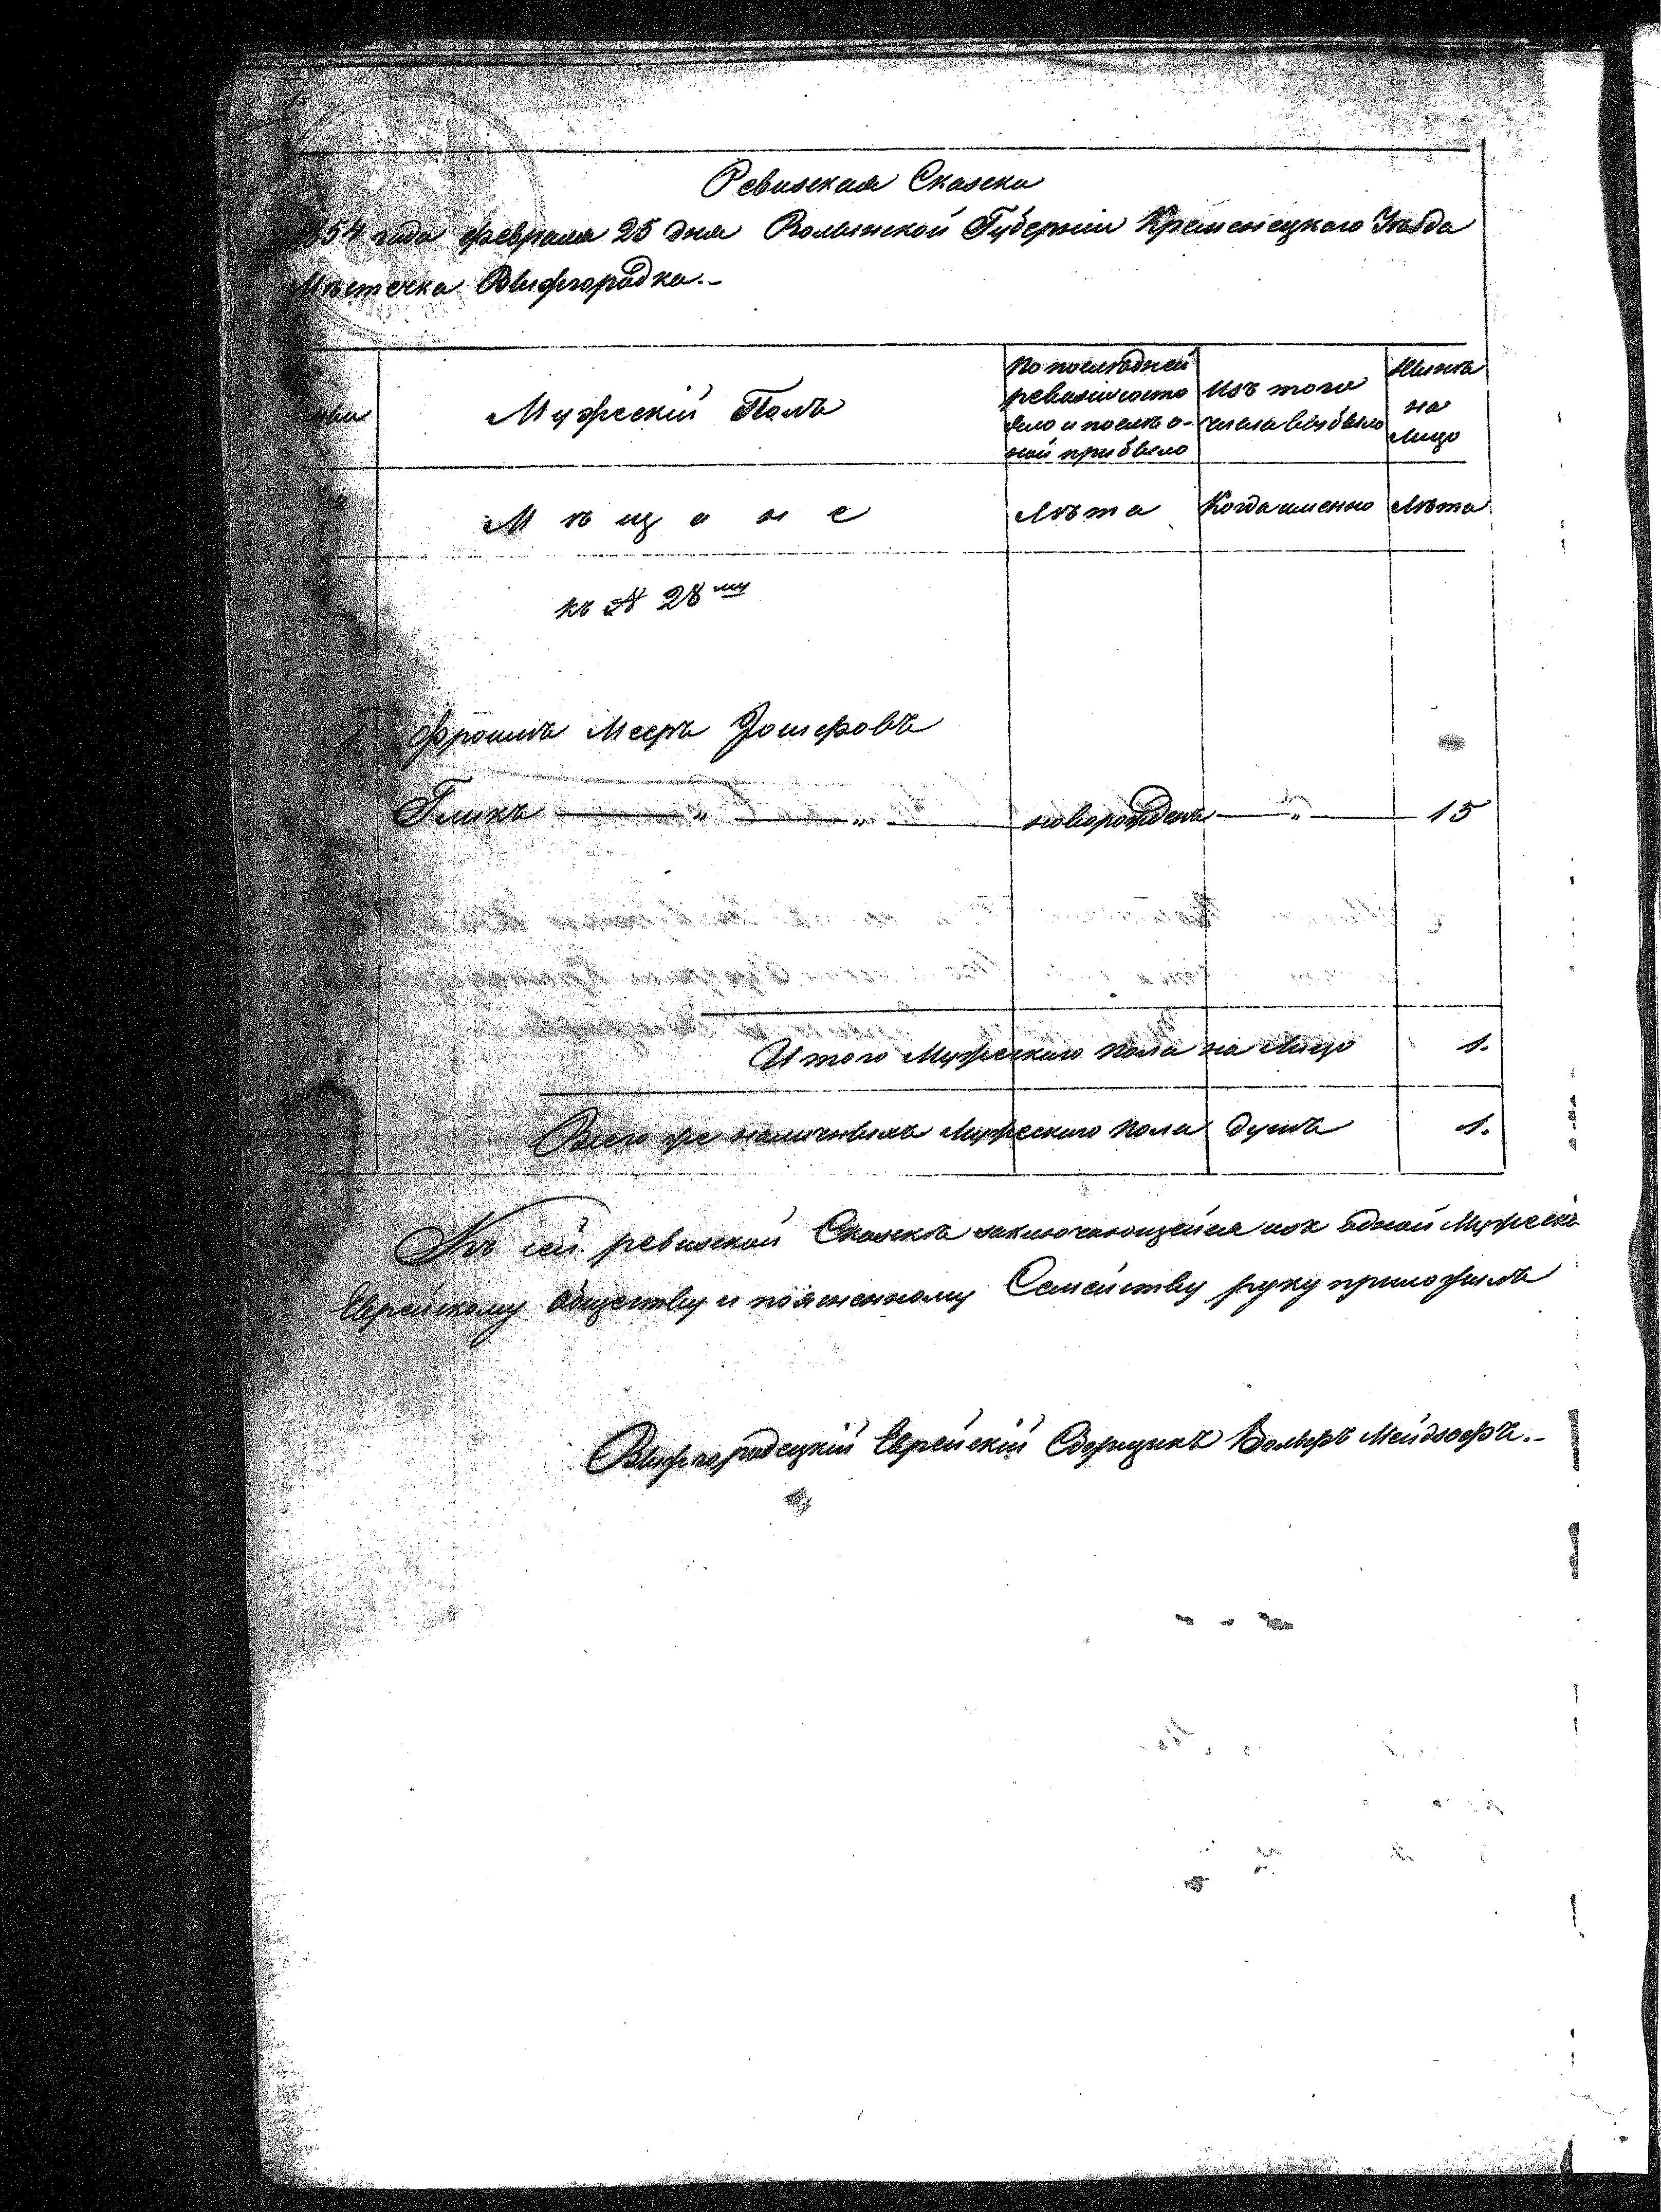 Ревизская Сказка
1854 года февраля 25 дня Волынской Губерніи Кременецкаго Уѣзда
Мѣстечка Вышгородка.-
Мужескій Полъ
По послѣдней
ревизіи состо
яло и послѣ о-
ной прибыло
Изъ того
числа выбыло
Нынѣ
на
лицо
Мѣщане
Лѣта
Когда именно
Лѣта
къ № 28му
1. Фроимъ Мееръ Іошефовъ
Гликъ — " — " — новорожденъ — " — 15
Итого Мужескаго пола на лицо 1.
Всего же наличныхъ Мужескаго пола душъ 1.
Къ сей ревизской Сказкѣ заключающейся изъ одной Мужеска
Еврейскому обществу и поясненному Семейству руку приложилъ
Вышгородецкій Еврейскій Сборщикъ Вольфъ